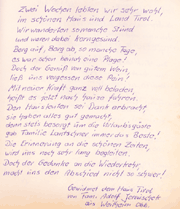 Zwei Wochen lebten wir sehr wohl,
im schönen Haus und Land Tirol.
Wir wanderten so manche Stund
und waren dabei kerngesund
Bergauf, Berg ab, so manche Tage,
es war schon manch eine Plage!
Doch der Genuß am guten
ließ uns vergessen diese Pein!
Mit neuer Kraft ganz voll beladen,
heißt es jetzt nach Hause fahren.
Den Hausleuten sei Dank erbracht,
sie haben alles gut gemacht,
eben stets besorgt um die Urlaubsgäste
Familie Lentschner immer das Beste!
Die Erinnerung an die schönen Zeiten,
wird uns noch sehr lang begleiten.
Doch der Gedanke an die Wiederkehr
macht uns den Abschied nicht so schwer!
Gewidmet dem Haus Tirol
von Fam. Adolf
aus